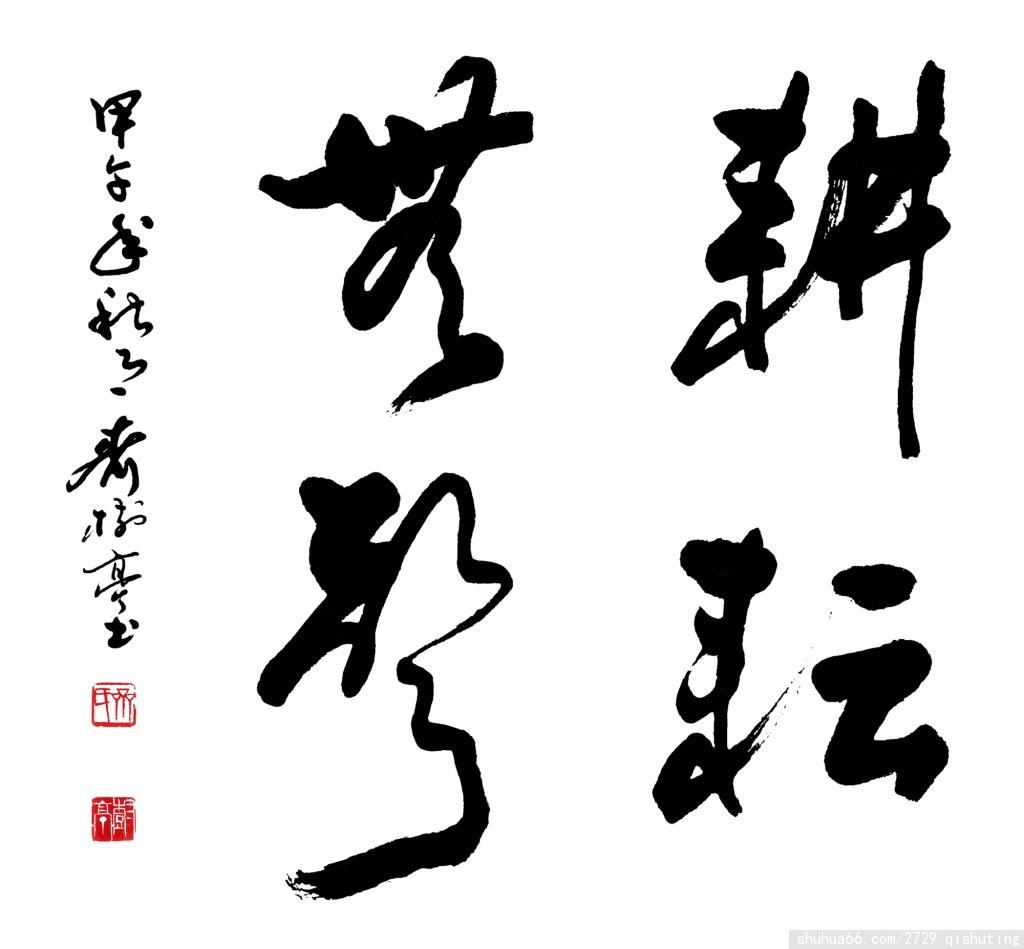 耕耘
無聲
甲午年秋月齊樹亭书
齊氏
樹亭
shuhua66.com/2729 qishuting